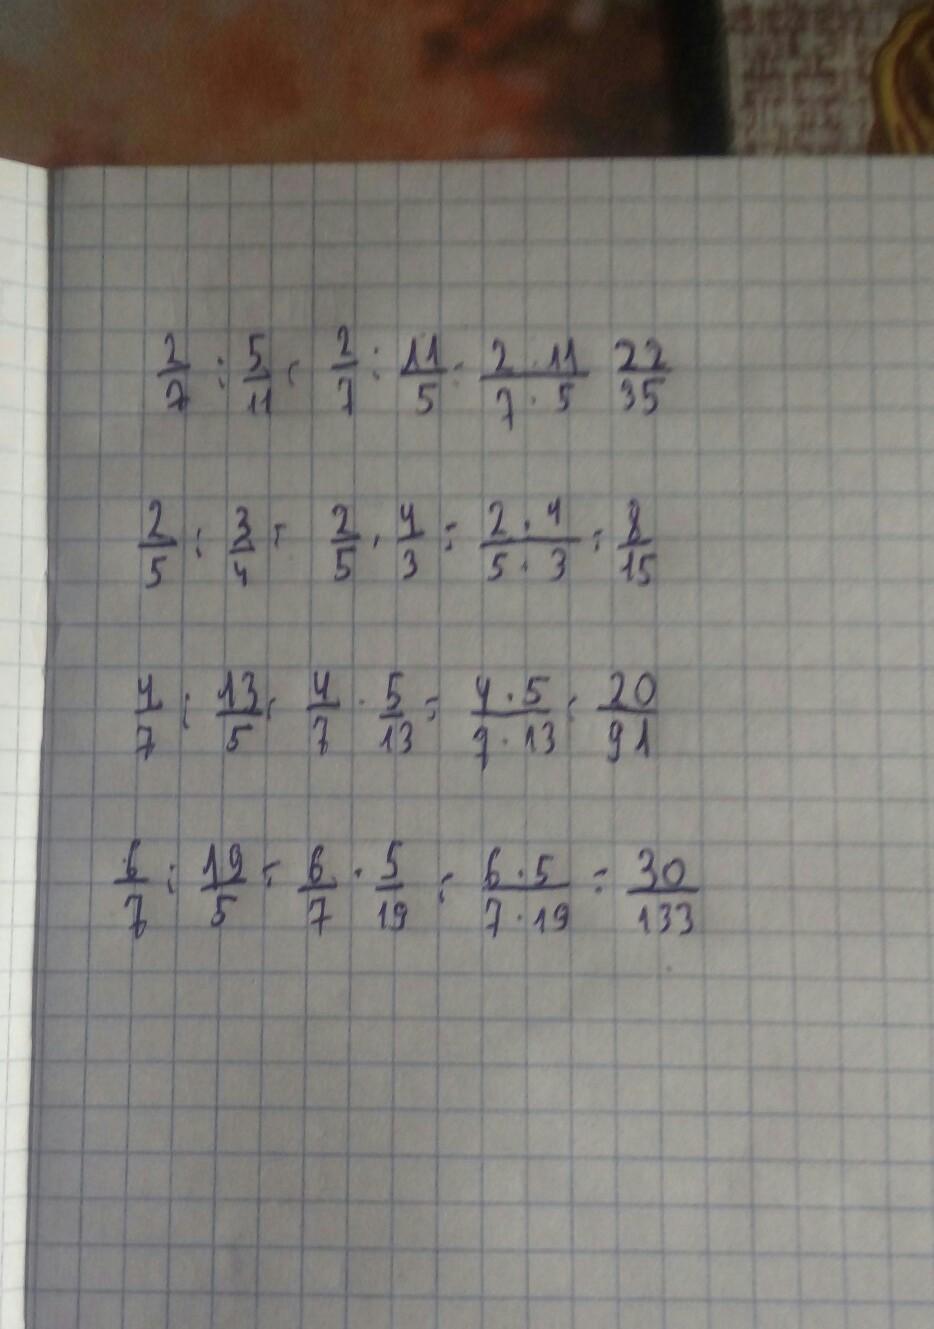 2/7 : 5/11 = 2/7 : 11/5 = 2 · 11/7 · 5 22/35
2/5 : 3/4 = 2/5 · 4/3 = 2 · 4/5 · 3 = 8/15
4/7 : 13/5 = 4/7 · 5/13 = 4 · 5/7 · 13 = 20/91
6/7 : 19/5 = 6/7 · 5/19 = 6 · 5/7 · 19 = 30/133